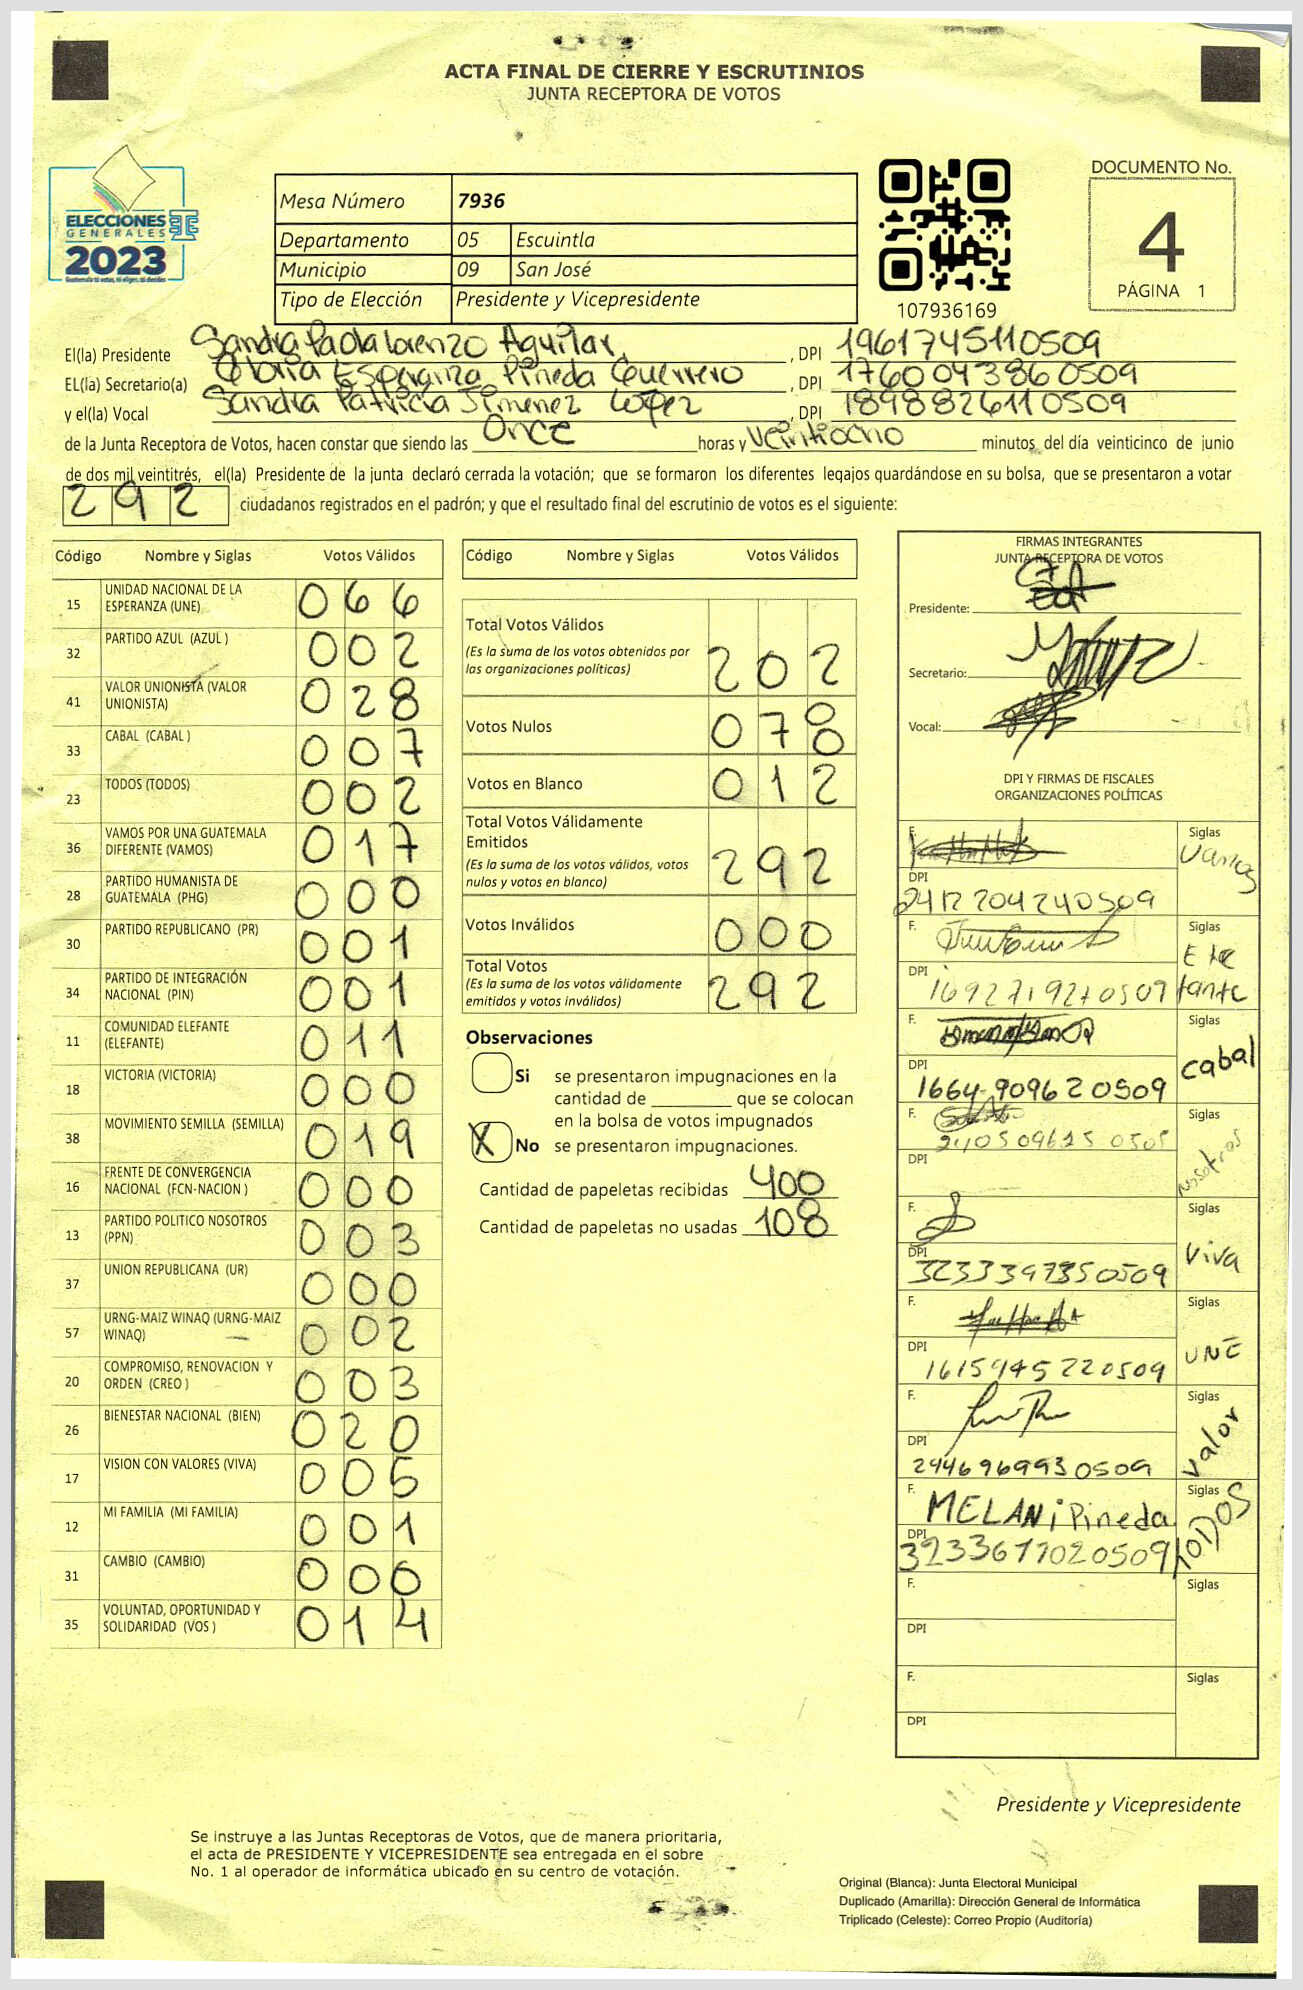 ACTA FINAL DE CIERRE Y ESCRUTINIOS
JUNTA RECEPTORA DE VOTOS
ELECCIONES
GENERALES
2023
Mesa Número 7936
Departamento 05 Escuintla
Municipio 09 San José
Tipo de Elección Presidente y Vicepresidente
107936169
DOCUMENTO No.
4
PÁGINA 1
El(la) Presidente Sandra Paola Lorenzo Aguilar , DPI 1961745110509
EL(la) Secretario(a) Gloria Esperanza Pineda Guerrero , DPI 1760043860509
y el(la) Vocal Sandra Patricia Jimenez López , DPI 1898826110509
de la Junta Receptora de Votos, hacen constar que siendo las Once horas y Veintiocho minutos del día veinticinco de junio
de dos mil veintitrés, el(la) Presidente de la junta declaró cerrada la votación; que se formaron los diferentes legajos guardándose en su bolsa, que se presentaron a votar
292 ciudadanos registrados en el padrón; y que el resultado final del escrutinio de votos es el siguiente:
Código Nombre y Siglas Votos Válidos
15 UNIDAD NACIONAL DE LA ESPERANZA (UNE) 066
32 PARTIDO AZUL (AZUL ) 002
41 VALOR UNIONISTA (VALOR UNIONISTA) 028
33 CABAL (CABAL ) 007
23 TODOS (TODOS) 002
36 VAMOS POR UNA GUATEMALA DIFERENTE (VAMOS) 017
28 PARTIDO HUMANISTA DE GUATEMALA (PHG) 000
30 PARTIDO REPUBLICANO (PR) 001
34 PARTIDO DE INTEGRACIÓN NACIONAL (PIN) 001
11 COMUNIDAD ELEFANTE (ELEFANTE) 011
18 VICTORIA (VICTORIA) 000
38 MOVIMIENTO SEMILLA (SEMILLA) 019
16 FRENTE DE CONVERGENCIA NACIONAL (FCN-NACION ) 000
13 PARTIDO POLITICO NOSOTROS (PPN) 003
37 UNION REPUBLICANA (UR) 000
57 URNG-MAIZ WINAQ (URNG-MAIZ WINAQ) 002
20 COMPROMISO, RENOVACION Y ORDEN (CREO ) 003
26 BIENESTAR NACIONAL (BIEN) 020
17 VISION CON VALORES (VIVA) 005
12 MI FAMILIA (MI FAMILIA) 001
31 CAMBIO (CAMBIO)
35 VOLUNTAD, OPORTUNIDAD Y SOLIDARIDAD (VOS ) 014
Código Nombre y Siglas Votos Válidos
Total Votos Válidos
(Es la suma de los votos obtenidos por
las organizaciones políticas) 202
Votos Nulos 078
Votos en Blanco 012
Total Votos Válidamente
Emitidos
(Es la suma de los votos válidos, votos
nulos y votos en blanco) 292
Votos Inválidos 000
Total Votos
(Es la suma de los votos válidamente
emitidos y votos inválidos) 292
Observaciones
Si se presentaron impugnaciones en la
cantidad de ________ que se colocan
en la bolsa de votos impugnados
X No se presentaron impugnaciones.
Cantidad de papeletas recibidas 400
Cantidad de papeletas no usadas 108
FIRMAS INTEGRANTES
JUNTA RECEPTORA DE VOTOS
Presidente:
Secretario:
Vocal:
DPI Y FIRMAS DE FISCALES
ORGANIZACIONES POLÍTICAS
F. Siglas Vamos
DPI 2412204240509
F. Siglas
DPI
F. Siglas cabal
DPI 1664909620509
F. Siglas nosotros
DPI
F. Siglas Viva
DPI 3233397350509
F. Siglas UNE
DPI 1615945220509
F. Siglas Valor
DPI 2446969930509
F. MELANi Pineda Siglas TODOS
DPI
F. Siglas
DPI
F. Siglas
DPI
Presidente y Vicepresidente
Se instruye a las Juntas Receptoras de Votos, que de manera prioritaria,
el acta de PRESIDENTE Y VICEPRESIDENTE sea entregada en el sobre
No. 1 al operador de informática ubicado en su centro de votación.
Original (Blanca): Junta Electoral Municipal
Duplicado (Amarilla): Dirección General de Informática
Triplicado (Celeste): Correo Propio (Auditoría)